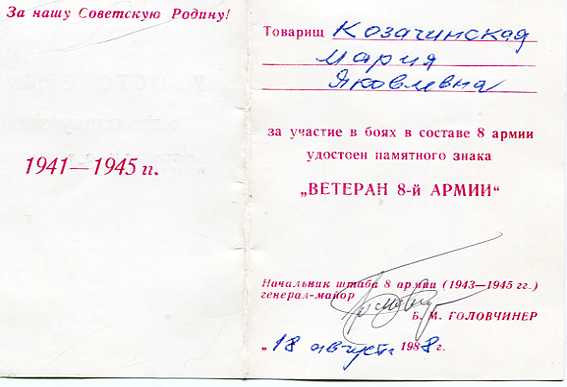 За нашу Советскую Родину!
1941—1945 гг.
Товарищ Козачинская
Мария
Яковлевна
за участие в боях в составе 8 армии
удостоен памятного знака
„ВЕТЕРАН 8-й АРМИИ“
Начальник штаба 8 армии (1943—1945 гг.)
генерал-майор
Б. М. ГОЛОВЧИНЕР
„ 18 август 1988 г.